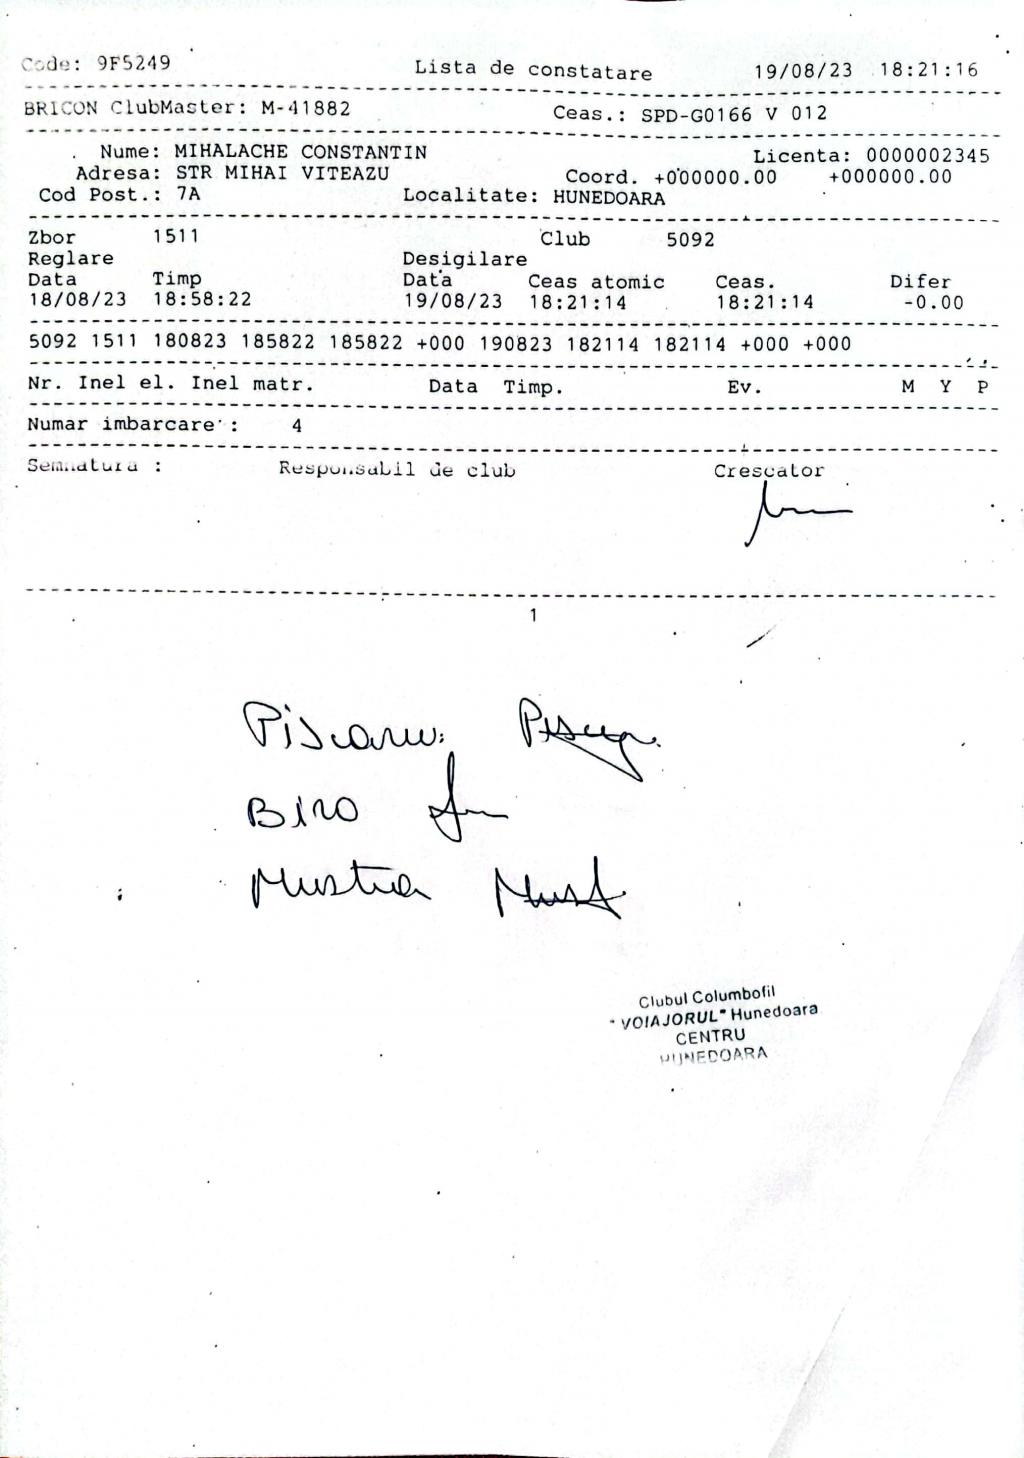 Code: 9F5249 Lista de constatare 19/08/23 18:21:16
BRICON ClubMaster: M-41882 Ceas.: SPD-G0166 V 012
Nume: MIHALACHE CONSTANTIN Licenta: 0000002345
Adresa: STR MIHAI VITEAZU Coord. +000000.00 +000000.00
Cod Post.: 7A Localitate: HUNEDOARA
Zbor 1511 Club 5092
Reglare Desigilare
Data Timp Data Ceas atomic Ceas. Difer
18/08/23 18:58:22 19/08/23 18:21:14 18:21:14 -0.00
5092 1511 180823 185822 185822 +000 190823 182114 182114 +000 +000
Nr. Inel el. Inel matr. Data Timp. Ev. M Y P
Numar imbarcare : 4
Semnatura : Responsabil de club Crescator
1
Piscanu
Biro
Mustra
Clubul Columbofil
"VOIAJORUL" Hunedoara
CENTRU
HUNEDOARA